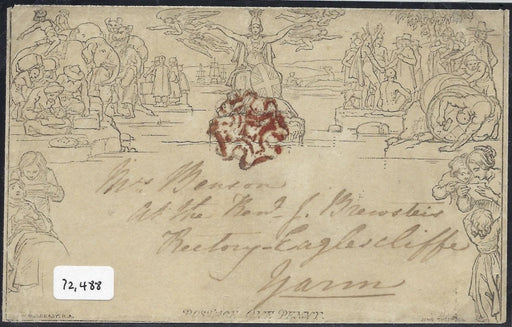 Mrs Benson
At the Revd. J. Brewster's
Rectory Eaglescliffe
Yarm
72,488
POSTAGE ONE PENNY.